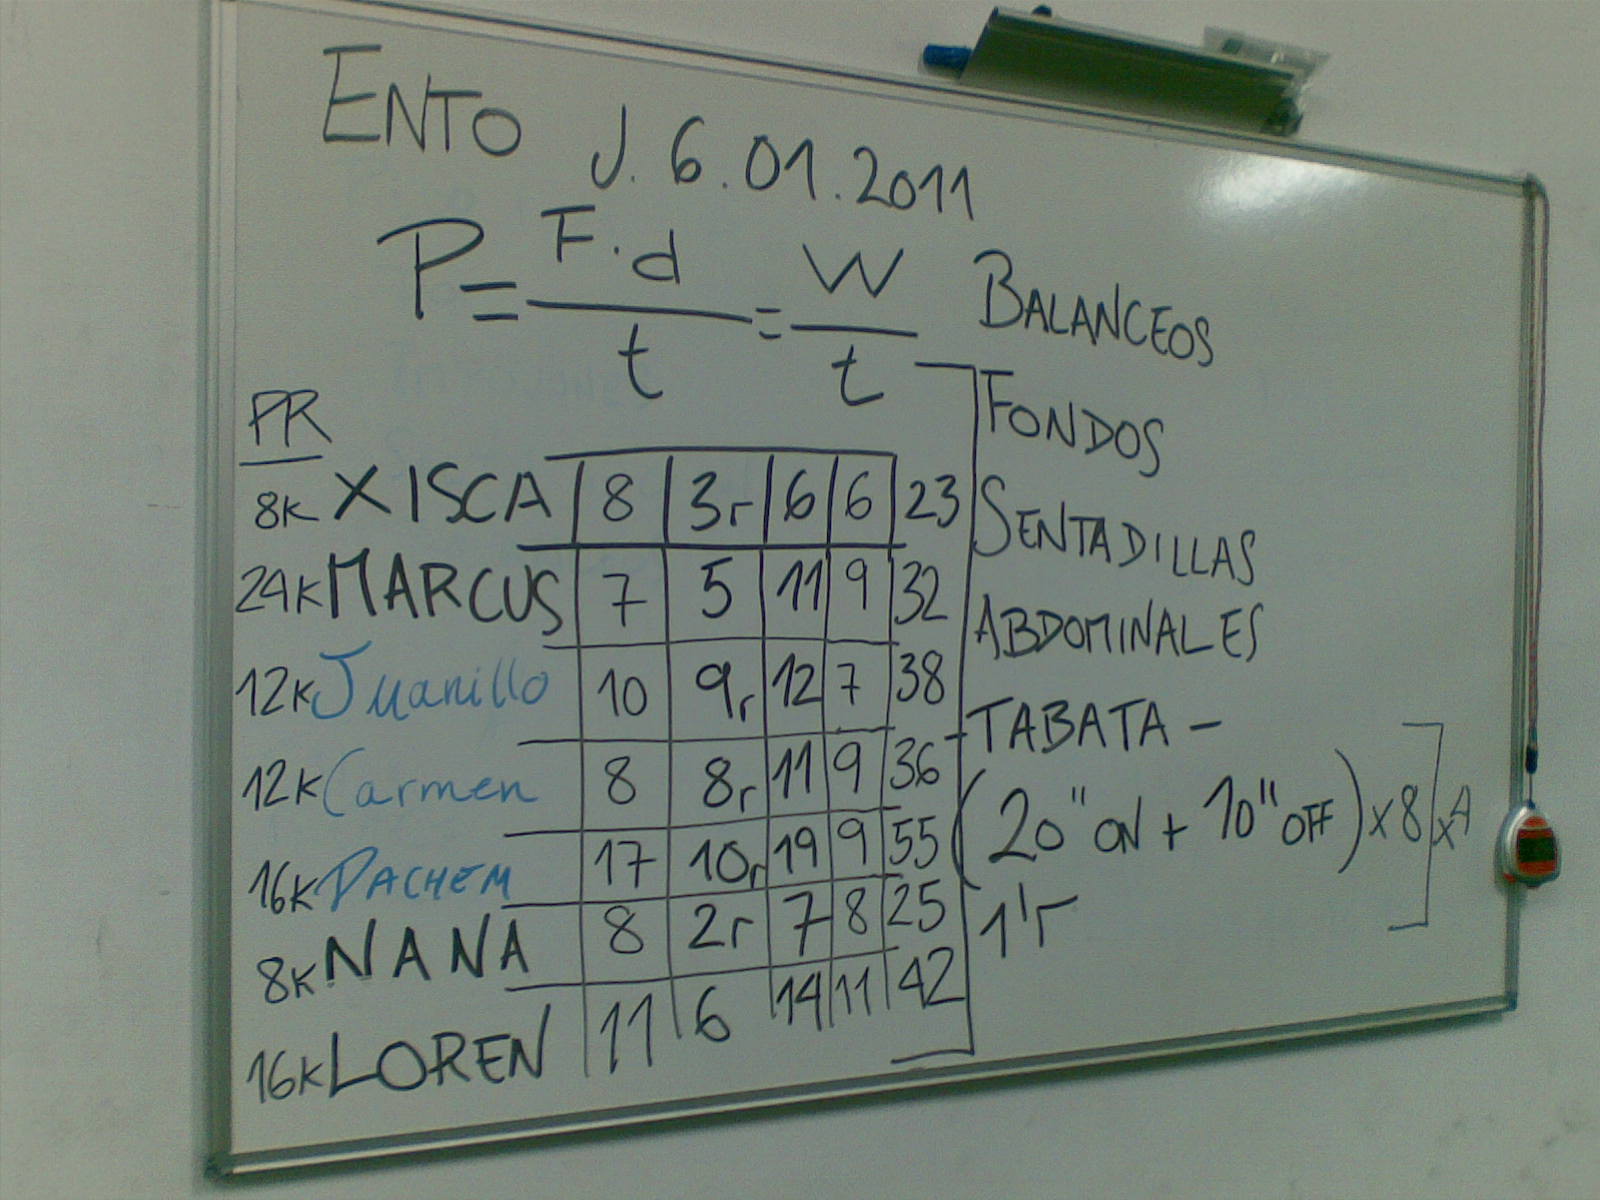 ENTO J. 6.01.2011
P = F·d / t = W / t
PR
8K XISCA 8 3r 6 6 23
24K MARCUS 7 5 11 9 32
12K Juanillo 10 9r 12 7 38
12K Carmen 8 8r 11 9 36
16K PACHEM 17 10r 19 9 55
8K NANA 8 2r 7 8 25
16K LOREN 11 6 14 11 42
BALANCEOS
FONDOS
SENTADILLAS
ABDOMINALES
TABATA -
(20" ON + 10" OFF) x 8] x 4
1' r